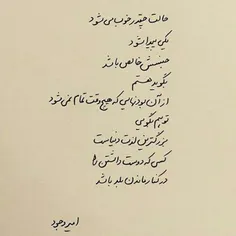 حالت چقدر خوب می شود
یکی پیدا شود
جنسش خالص باشد
بگوید هستم
از آن بودنهایی که هیچ وقت تمام نمی شود
تو هم بگویی
بزرگترین لذت دنیاست
کسی که دوست داشتن را
در کنار ماندن بلد باشد
امیر وجود